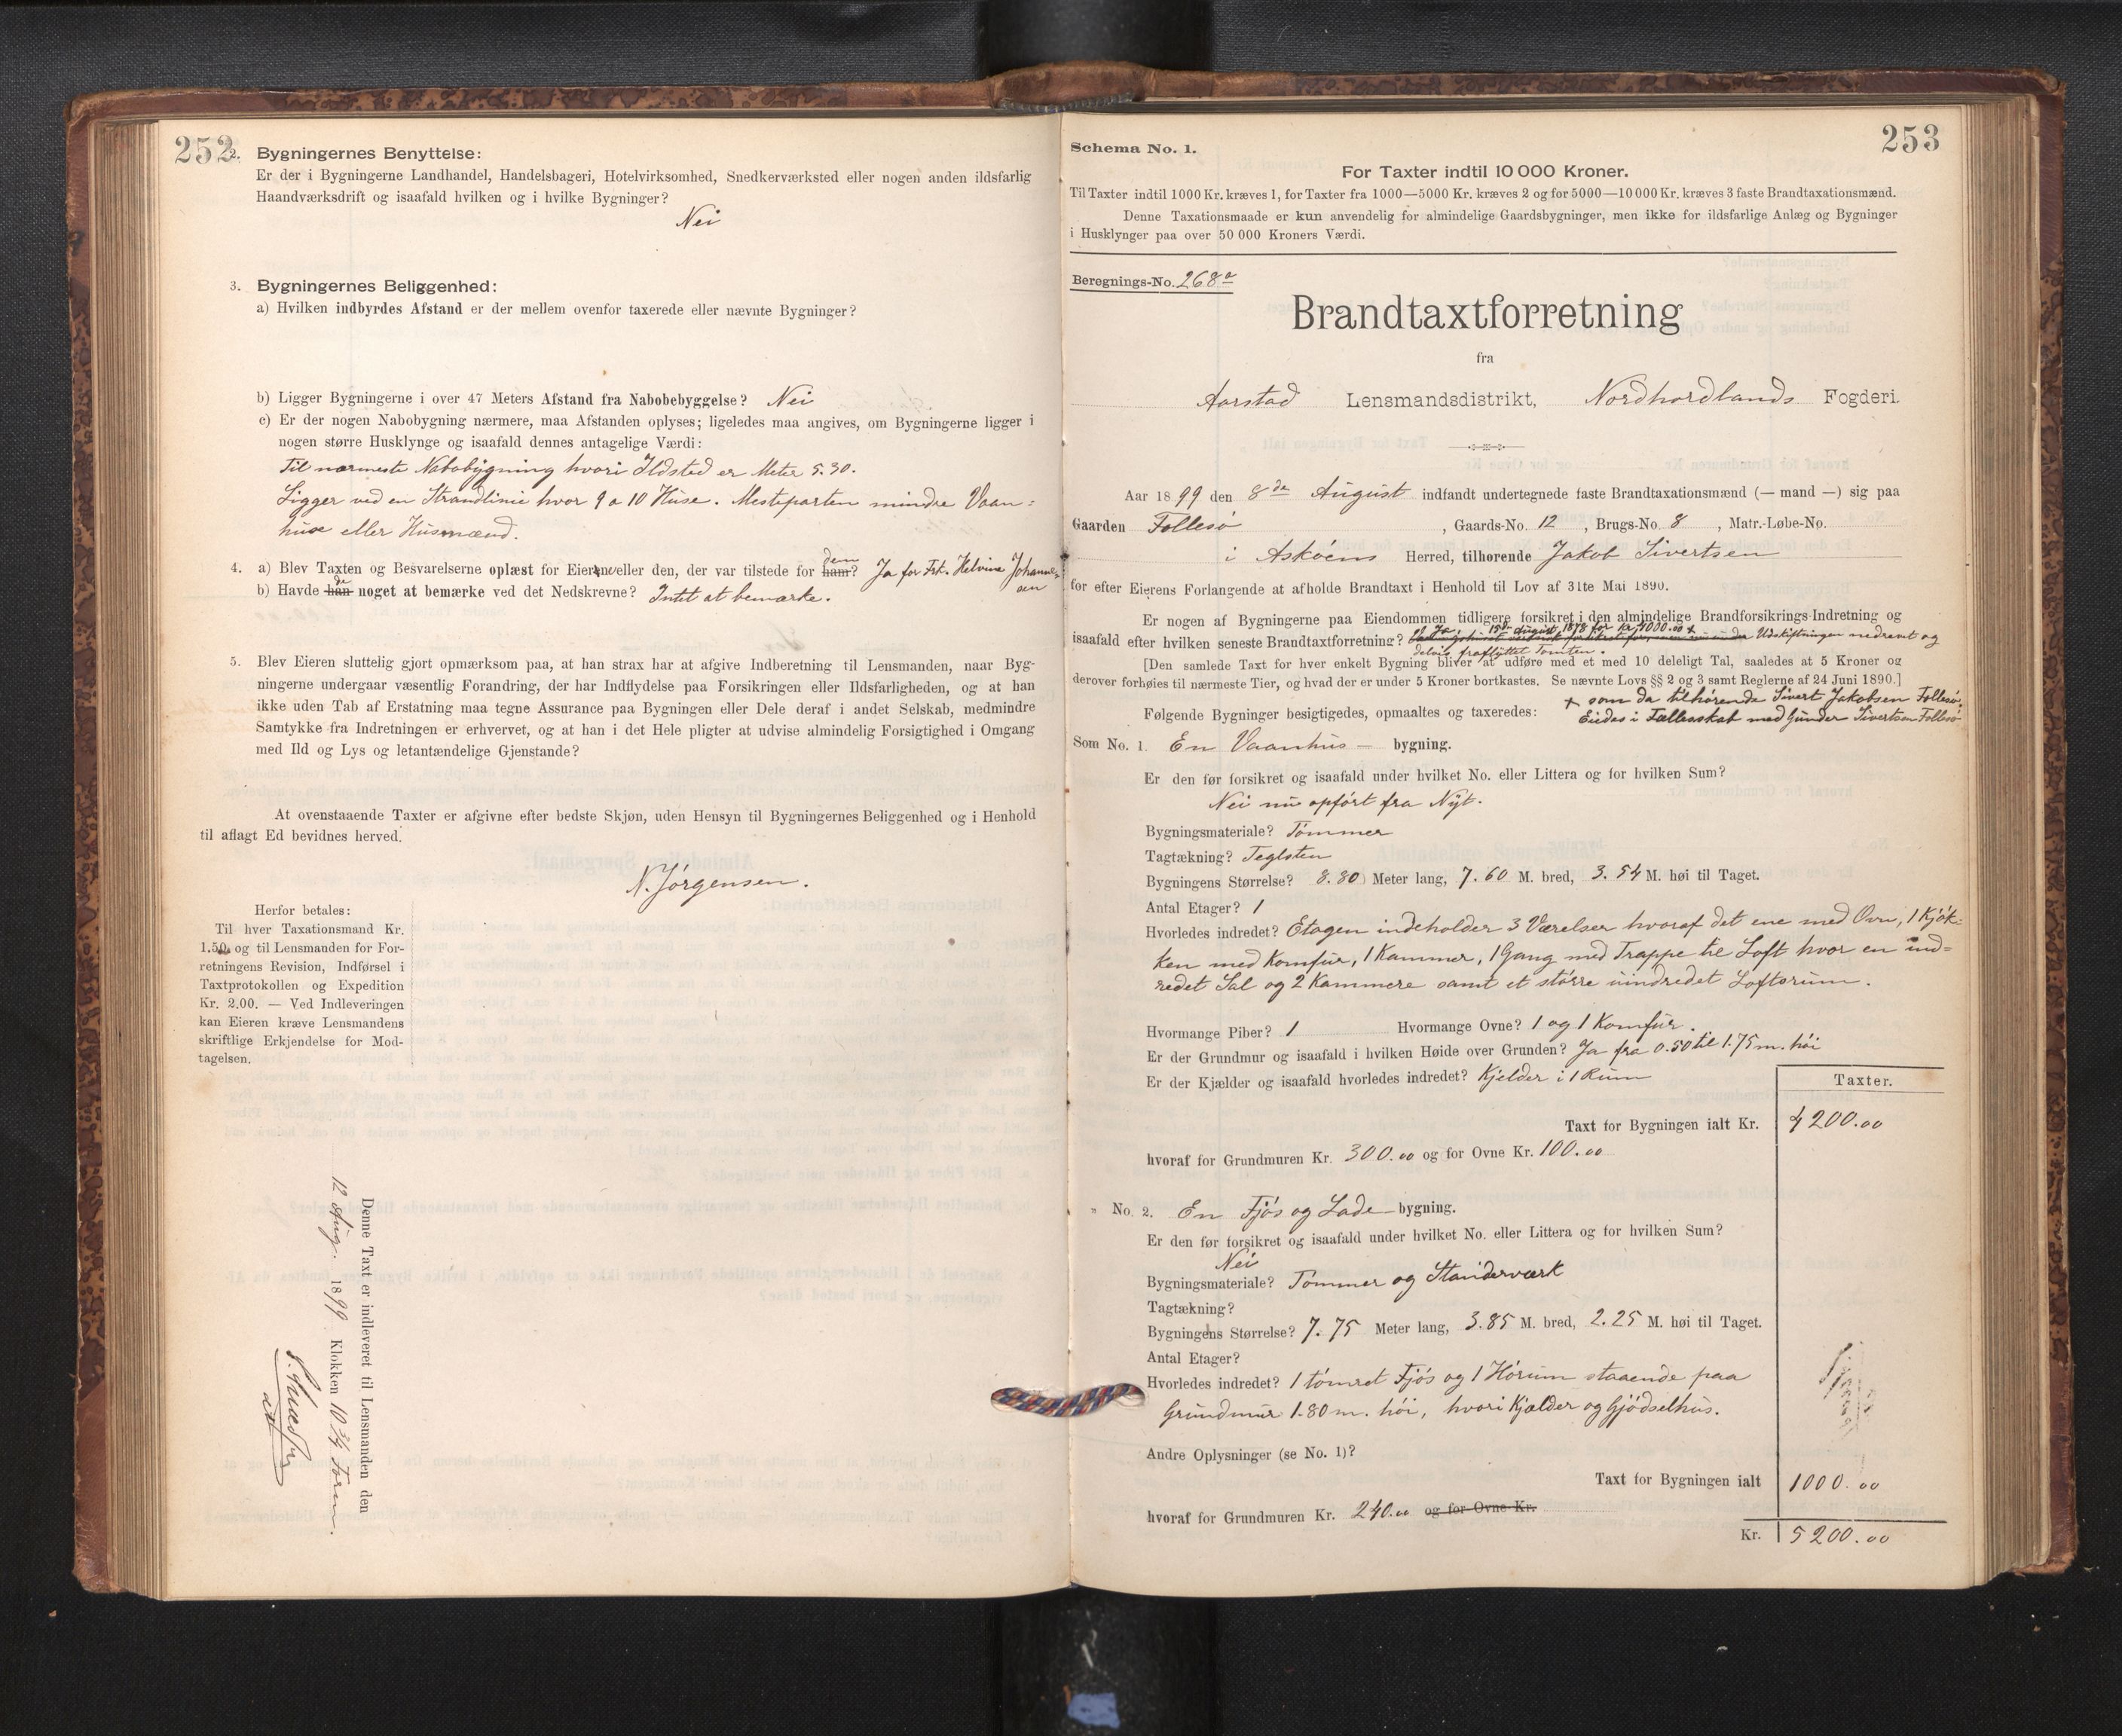 252
2. Bygningernes Benyttelse:
Er der i Bygningerne Landhandel, Handelsbageri, Hotelvirksomhed, Snedkerværksted eller nogen anden ildsfarlig
Haandværksdrift og isaafald hvilken og i hvilke Bygninger?
Nei
3. Bygningernes Beliggenhed:
a) Hvilken indbyrdes Afstand er der mellem ovenfor taxerede eller nævnte Bygninger?
b) Ligger Bygningerne i over 47 Meters Afstand fra Nabobebyggelse? Nei
c) Er der nogen Nabobygning nærmere, maa Afstanden oplyses; ligeledes maa angives, om Bygningerne ligger i
nogen større Husklynge og isaafald dennes antagelige Værdi:
Til nærmeste Nabobygning hvori Ildsted er Meter 5.30.
Ligger ved en Strandlinie hvor 9 a 10 Huse. Mesteparten mindre Vaan-
huse eller Husmænd.
4. a) Blev Taxten og Besvarelserne oplæst for Eierne eller den, der var tilstede for ham? dem Ja for Frk. Helvine Johanne-
sen
b) Havde han de noget at bemærke ved det Nedskrevne? Intet at bemærke.
5. Blev Eieren sluttelig gjort opmærksom paa, at han strax har at afgive Indberetning til Lensmanden, naar Byg-
ningerne undergaar væsentlig Forandring, der har Indflydelse paa Forsikringen eller Ildsfarligheden, og at han
ikke uden Tab af Erstatning maa tegne Assurance paa Bygningen eller Dele deraf i andet Selskab, medmindre
Samtykke fra Indretningen er erhvervet, og at han i det Hele pligter at udvise almindelig Forsigtighed i Omgang
med Ild og Lys og letantændelige Gjenstande?
At ovenstaaende Taxter er afgivne efter bedste Skjøn, uden Hensyn til Bygningernes Beliggenhed og i Henhold
til aflagt Ed bevidnes herved.
N. Jørgensen.
Herfor betales:
Til hver Taxationsmand Kr.
1.50, og til Lensmanden for For-
retningens Revision, Indførsel i
Taxtprotokollen og Expedition
Kr. 2.00. — Ved Indleveringen
kan Eieren kræve Lensmandens
skriftlige Erkjendelse for Mod-
tagelsen.
Denne Taxt er indleveret til Lensmanden den
12 Aug. 1899 Klokken 10 3/4 Form.
253
Schema No. 1.
For Taxter indtil 10 000 Kroner.
Til Taxter indtil 1000 Kr. kræves 1, for Taxter fra 1000—5000 Kr. kræves 2 og for 5000—10000 Kr. kræves 3 faste Brandtaxationsmænd.
Denne Taxationsmaade er kun anvendelig for almindelige Gaardsbygninger, men ikke for ildsfarlige Anlæg og Bygninger
i Husklynger paa over 50 000 Kroners Værdi.
Beregnings-No. 268 a
Brandtaxtforretning
fra
Aarstad Lensmandsdistrikt, Nordhordlands Fogderi.
Aar 1899 den 8de August indfandt undertegnede faste Brandtaxationsmænd (— mand —) sig paa
Gaarden Follesø, Gaards-No. 12, Brugs-No. 8, Matr.-Løbe-No.
i Askøens Herred, tilhørende Jakob Sivertsen
for efter Eierens Forlangende at afholde Brandtaxt i Henhold til Lov af 31te Mai 1890.
Er nogen af Bygningerne paa Eiendommen tidligere forsikret i den almindelige Brandforsikrings-Indretning og
isaafald efter hvilken seneste Brandtaxtforretning? Ja, 15de August 1878 for Kr. 1000.00 + Udskiftningen nedrevet og
delvis fraflyttet Tomten.
[Den samlede Taxt for hver enkelt Bygning bliver at udføre med et med 10 deleligt Tal, saaledes at 5 Kroner og
derover forhøies til nærmeste Tier, og hvad der er under 5 Kroner bortkastes. Se nævnte Lovs §§ 2 og 3 samt Reglerne af 24 Juni 1890.]
+ som da tilhørende Sivert Jakobsen Follesø.
Følgende Bygninger besigtigedes, opmaaltes og taxeredes: Eiedes i Fællesskab med Gunder Sivertsen Follesø
Som No. 1. En Vaanhus — bygning.
Er den før forsikret og isaafald under hvilket No. eller Littera og for hvilken Sum?
Nei nu opført fra Nyt.
Bygningsmateriale? Tømmer
Tagtækning? Teglsten
Bygningens Størrelse? 8.80 Meter lang, 7.60 M. bred, 3.54 M. høi til Taget.
Antal Etager? 1
Hvorledes indredet? Etagen indeholder 3 Værelser hvoraf det ene med Ovn, 1 Kjøk-
ken med Komfur, 1 Kammer, 1 Gang med Trappe til Loft hvor en ind-
redet Sal og 2 Kammere samt et større uindredet Loftsrum.
Hvormange Piber? 1 Hvormange Ovne? 1 og 1 Komfur.
Er der Grundmur og isaafald i hvilken Høide over Grunden? Ja fra 0.50 til 1.75 m. høi
Er der Kjælder og isaafald hvorledes indredet? Kjelder i 1 Rum
Taxter.
Taxt for Bygningen ialt Kr. 4200.00
hvoraf for Grundmuren Kr. 300.00 og for Ovne Kr. 100.00
" No. 2. En Fjøs og Lade bygning.
Er den før forsikret og isaafald under hvilket No. eller Littera og for hvilken Sum?
Nei
Bygningsmateriale? Tømmer og Standerværk
Tagtækning?
Bygningens Størrelse? 7.75 Meter lang, 3.85 M. bred, 2.25 M. høi til Taget.
Antal Etager?
Hvorledes indredet? 1 tømret Fjøs og 1 Hørum staaende paa
Grundmur 1.80 m. høi, hvori Kjælder og Gjødselhus.
Andre Oplysninger (se No. 1)?
Taxt for Bygningen ialt 1000.00
hvoraf for Grundmuren Kr. 240.00 og for Ovne Kr.
Kr. 5200.00